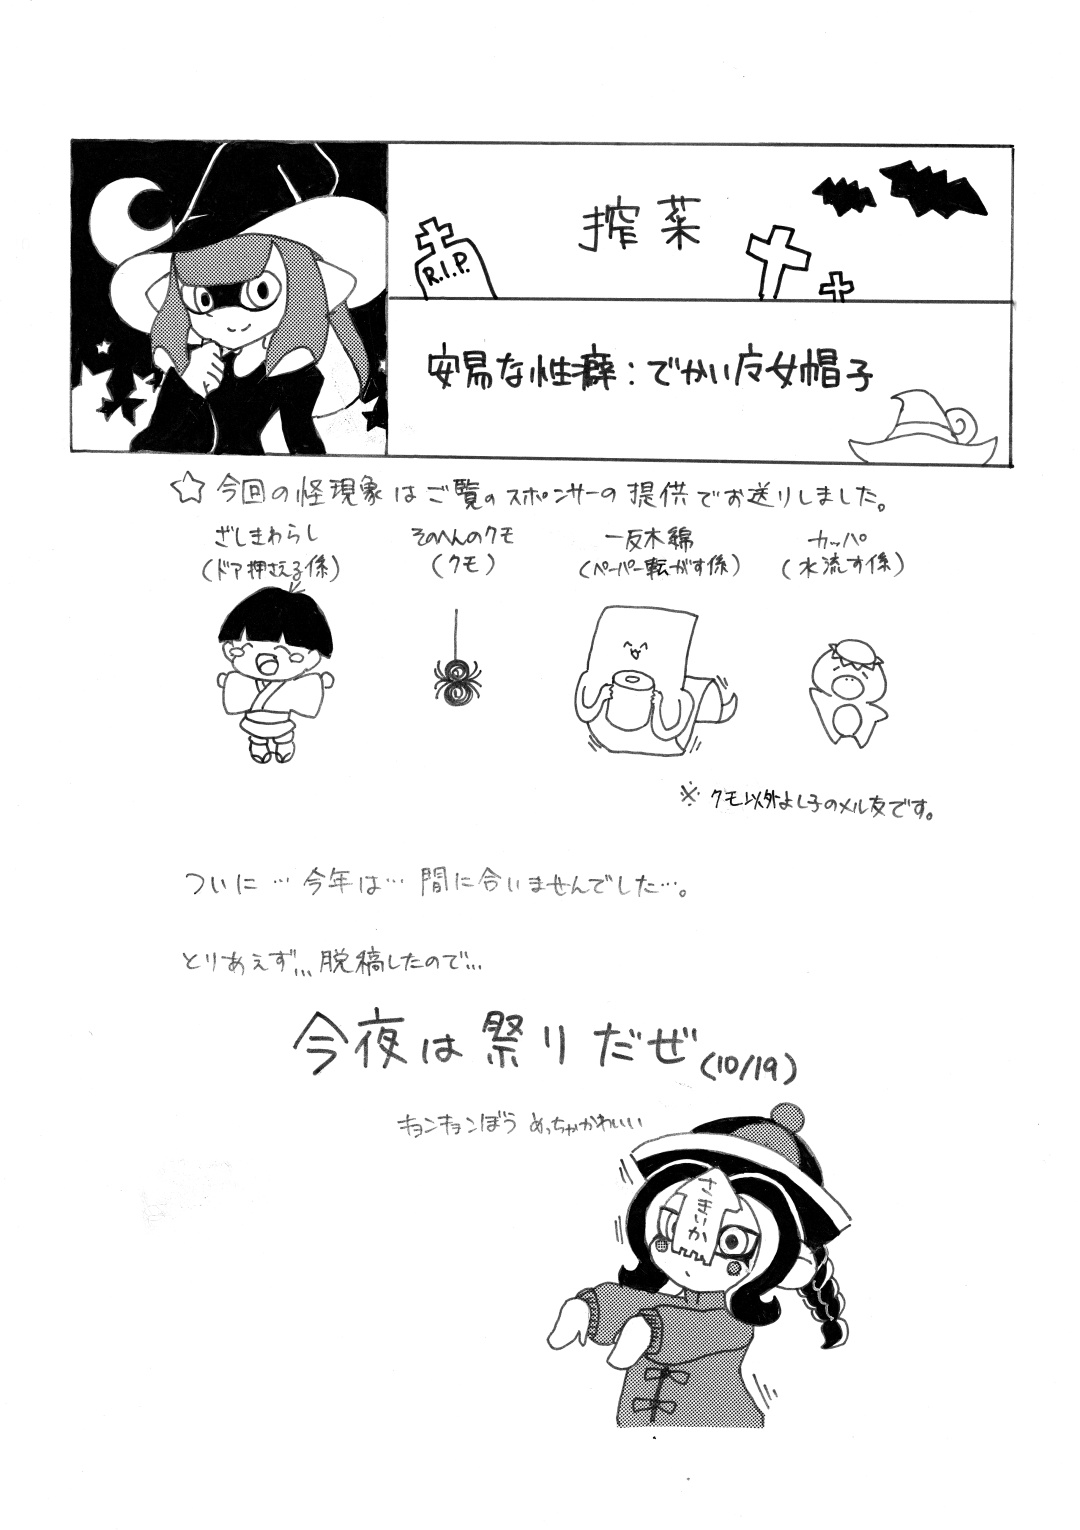 搾菜
R.I.P.
安易な性癖:でかい魔女帽子
☆今回の怪現象はご覧のスポンサーの提供でお送りしました。
ざしきわらし
(ドア押さえる係)
そのへんのクモ
(クモ)
一反木綿
(ペーパー転がす係)
カッパ
(水流す係)
※クモ以外よし子のメル友です。
ついに…今年は…間に合いませんでした…。
とりあえず…脱稿したので…
今夜は祭りだぜ(10/19)
キョンキョンぼうめっちゃかわいい
さきいか